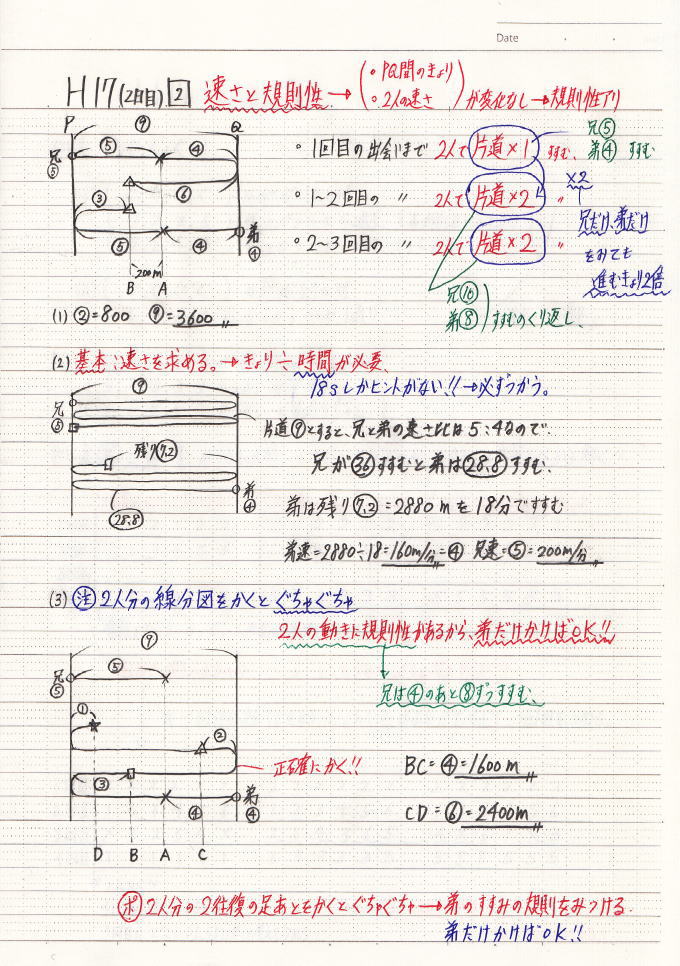 Date
H17(2日目) 2 速さと規則性→(。PQ間のきょり 。2人の速さ)が変化なし→規則性アリ
P ⑨ Q
兄⑤ ⑤ ④
③ ⑥
⑤ ④ 弟④
200m
B A
。1回目の出会いまで 2人で 片道×1 すすむ、 兄⑤ 弟④ すすむ
。1~2回目の 〃 2人で 片道×2 〃
。2~3回目の 〃 2人で 片道×2 〃
×2
兄だけ、弟だけ
をみても
進むきょり2倍
兄⑩
弟⑧ すすむのくり返し、
(1) ②=800 ⑨=3600
(2) 基本:速さを求める。→きょり÷時間が必要、
18sしかヒントがない!!→必ずつかう。
⑨
兄⑤
残り(7.2)
弟④
(28.8)
片道⑨とすると、兄と弟の速さ比は5:4なので、
兄が㊱すすむと弟は(28.8)すすむ、
弟は残り(7.2)=2880mを18分ですすむ
弟速=2880÷18=160m/分=④ 兄速=⑤=200m/分
(3) 注 2人分の線分図をかくとぐちゃぐちゃ
2人の動きに規則性があるから、弟だけかけばOK!!
兄は④のあと⑧ずつすすむ、
⑨
兄⑤ ⑤
①
②
③
④ 弟④
正確にかく!!
D B A C
BC=④=1600m
CD=⑥=2400m
ポ 2人分の2往復の足あとをかくとぐちゃぐちゃ→弟のすすみの規則をみつける、
弟だけかけばOK!!